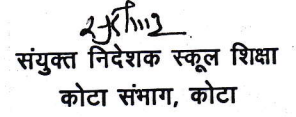 संयुक्त निदेशक स्कूल शिक्षा
कोटा संभाग, कोटा